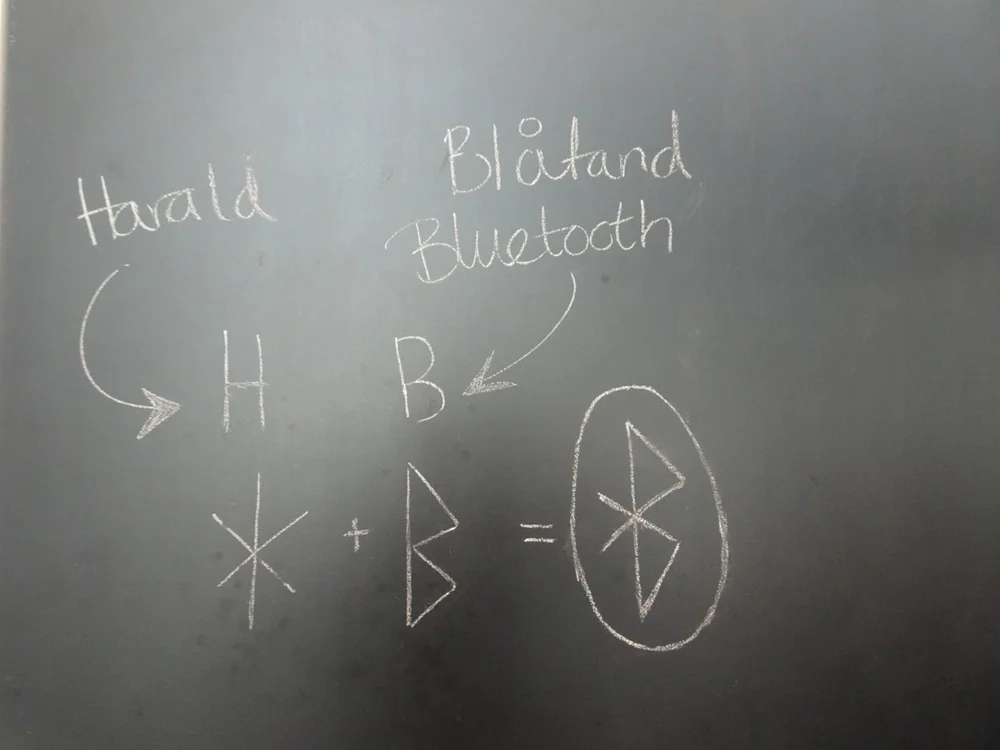 Harald
Blåtand
Bluetooth
H B
ᚼ + ᛒ = ᛒᚼ